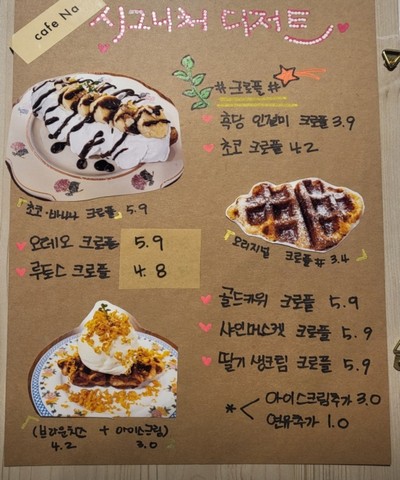 cafe Na
시그니처 디저트
#크로플#
흑당 인절미 크로플 3.9
초코 크로플 4.2
『초코·바나나 크로플』 5.9
오레오 크로플 5.9
루토스 크로플 4.8
『오리지널 크로플# 3.4』
골드키위 크로플 5.9
샤인머스켓 크로플 5.9
딸기 생크림 크로플 5.9
* < 아이스크림추가 3.0
연유추가 1.0
(브라운치즈 + 아이스크림)
4.2 3.0